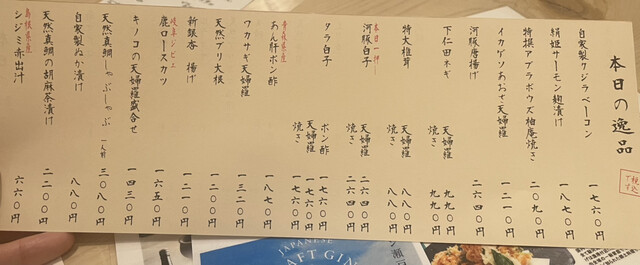 本日の逸品
自家製クジラベーコン 一七六〇円
絹姫サーモン麹漬け 一八七〇円
特撰アブラボウズ柚庵焼き 二〇九〇円
イカゲソあおさ天婦羅 一二一〇円
河豚唐揚げ 二六四〇円
下仁田ネギ 天婦羅 九九〇円
焼き 九九〇円
特大椎茸 天婦羅 八八〇円
焼き 八八〇円
本日一押し
河豚白子 天婦羅 二六四〇円
焼き 二六四〇円
タラ白子 ポン酢 一七六〇円
天婦羅 一七六〇円
焼き 一七六〇円
青森県産
あん肝ポン酢 一八七〇円
ワカサギ天婦羅 一三二〇円
天然ブリ大根 一二一〇円
新銀杏 揚げ 一二一〇円
岐阜ジビエ
鹿ロースカツ 一六五〇円
キノコの天婦羅盛合せ 一四三〇円
天然真鯛しゃぶしゃぶ 一人前 三〇八〇円
自家製ぬか漬け 八八〇円
天然真鯛の胡麻茶漬け 二二〇〇円
島根県産
シジミ赤出汁 六六〇円
JAPANESE